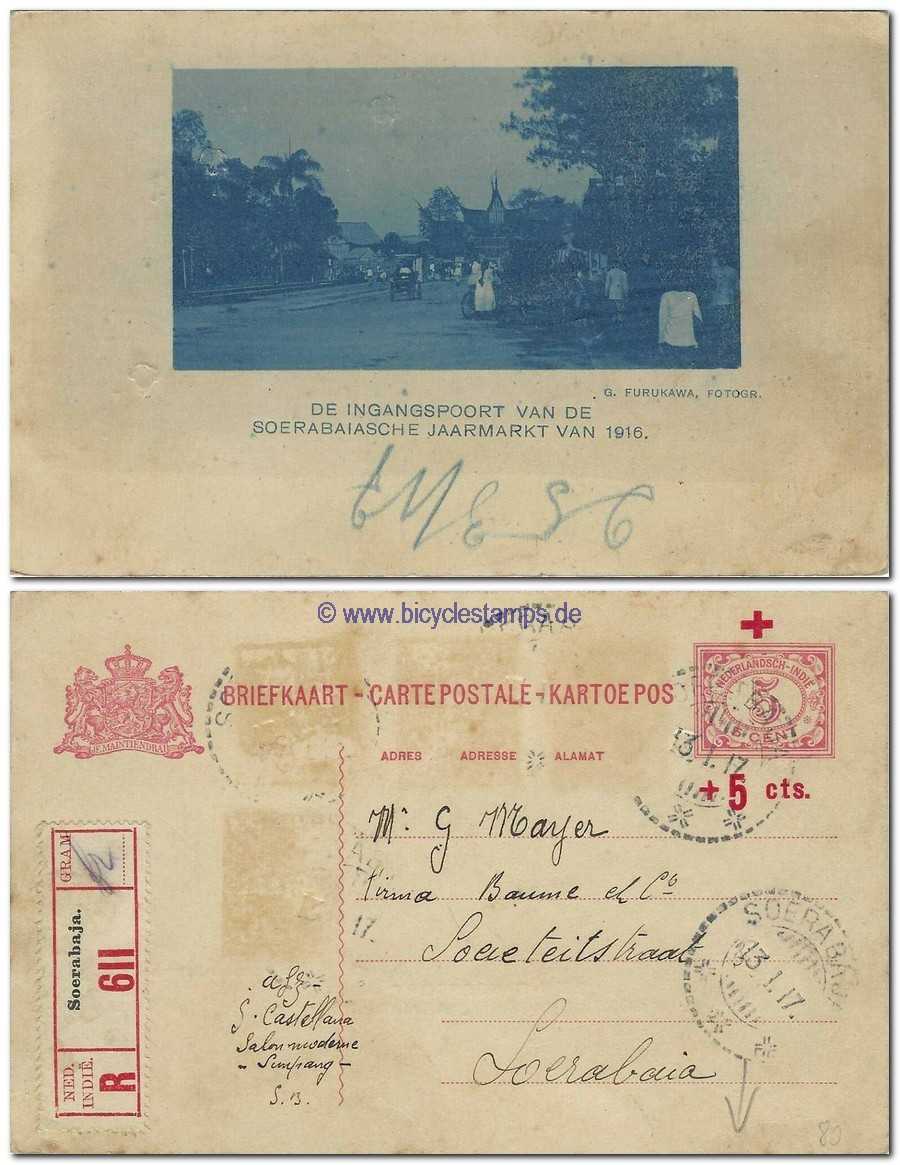 G. FURUKAWA, FOTOGR.
DE INGANGSPOORT VAN DE
SOERABAIASCHE JAARMARKT VAN 1916.
© www.bicyclestamps.de
JE MAINTIENDRAI
BRIEFKAART - CARTE POSTALE - KARTOE POS
ADRES ADRESSE ALAMAT
NEDERLANDSCH-INDIË
5
5 CENT
+ 5 cts.
13.1.17
Mr. G Mayer
Firma Baume et Co
Societeitstraat
Soerabaia
SOERABAJA
13.1.17.
17.
afz-
S. Castellana
Salon moderne
- Simpang -
S.B.
GRAM
Soerabaja.
611
NED. INDIË.
R
80